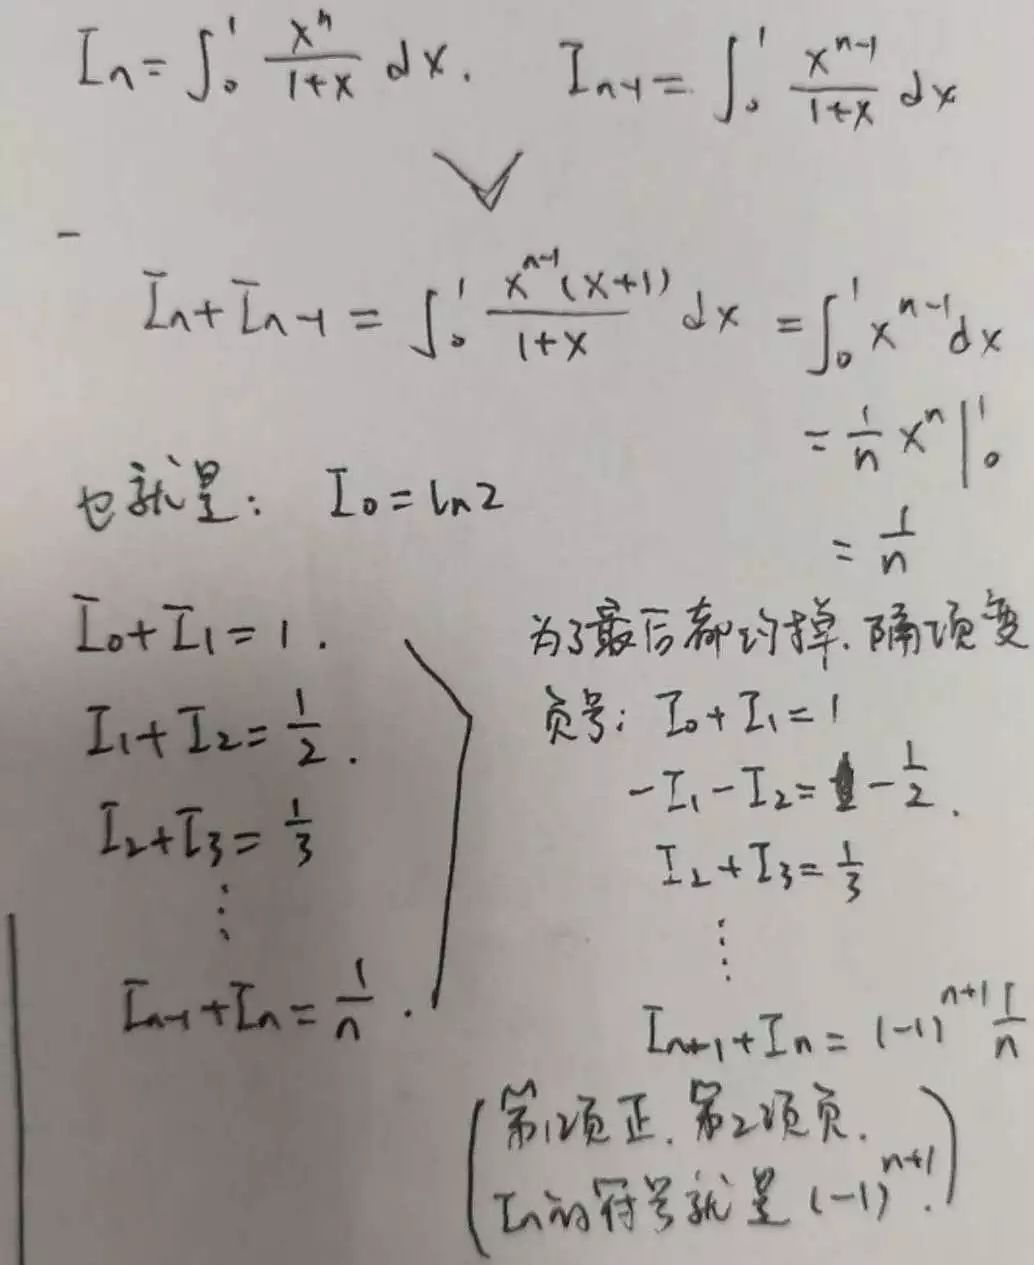 Iₙ = ∫₀¹ xⁿ/(1+x) dx. Iₙ₋₁ = ∫₀¹ xⁿ⁻¹/(1+x) dx
Iₙ + Iₙ₋₁ = ∫₀¹ xⁿ⁻¹(x+1)/(1+x) dx = ∫₀¹ xⁿ⁻¹ dx
= 1/n xⁿ |₀¹
= 1/n
也就是: I₀ = ln2
I₀ + I₁ = 1.
I₁ + I₂ = 1/2.
I₂ + I₃ = 1/3
⋮
Iₙ₋₁ + Iₙ = 1/n.
为了最后都约掉.隔项变
负号: I₀ + I₁ = 1
-I₁ - I₂ = -1/2.
I₂ + I₃ = 1/3
⋮
Iₙ₊₁ + Iₙ = (-1)ⁿ⁺¹ 1/n
(第1项正.第2项负.
Iₙ的符号就是(-1)ⁿ⁺¹.)